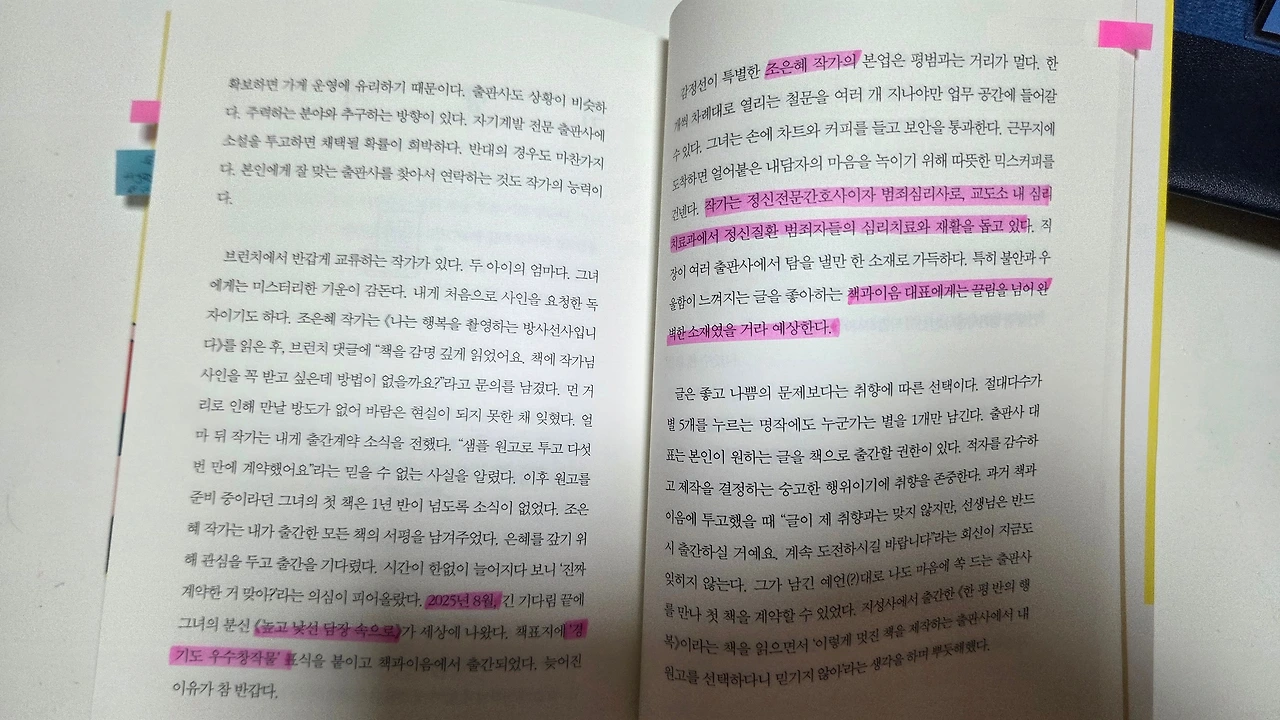 확보하면 가게 운영에 유리하기 때문이다. 출판사도 상황이 비슷하
다. 주력하는 분야와 추구하는 방향이 있다. 자기계발 전문 출판사에
소설을 투고하면 채택될 확률이 희박하다. 반대의 경우도 마찬가지
다. 본인에게 잘 맞는 출판사를 찾아서 연락하는 것도 작가의 능력이
다.
브런치에서 반갑게 교류하는 작가가 있다. 두 아이의 엄마다. 그녀
에게는 미스터리한 기운이 감돈다. 내게 처음으로 사인을 요청한 독
자이기도 하다. 조은혜 작가는 《나는 행복을 촬영하는 방사선사입니
다》를 읽은 후, 브런치 댓글에 “책을 감명 깊게 읽었어요. 책에 작가님
사인을 꼭 받고 싶은데 방법이 없을까요?”라고 문의를 남겼다. 먼 거
리로 인해 만날 방도가 없어 바람은 현실이 되지 못한 채 잊혔다. 얼
마 뒤 작가는 내게 출간계약 소식을 전했다. “샘플 원고로 투고 다섯
번 만에 계약했어요”라는 믿을 수 없는 사실을 알렸다. 이후 원고를
준비 중이라던 그녀의 첫 책은 1년 반이 넘도록 소식이 없었다. 조은
혜 작가는 내가 출간한 모든 책의 서평을 남겨주었다. 은혜를 갚기 위
해 관심을 두고 출간을 기다렸다. 시간이 한없이 늘어지다 보니 ‘진짜
계약한 거 맞아?’라는 의심이 피어올랐다. 2025년 8월, 긴 기다림 끝에
그녀의 분신 《높고 낯선 담장 속으로》가 세상에 나왔다. 책표지에 ‘경
기도 우수창작물’ 표식을 붙이고 책과이음에서 출간되었다. 늦어진
이유가 참 반갑다.
감정선이 특별한 조은혜 작가의 본업은 평범과는 거리가 멀다. 한
개씩 차례대로 열리는 철문을 여러 개 지나야만 업무 공간에 들어갈
수 있다. 그녀는 손에 차트와 커피를 들고 보안을 통과한다. 근무지에
도착하면 얼어붙은 내담자의 마음을 녹이기 위해 따뜻한 믹스커피를
건넨다. 작가는 정신전문간호사이자 범죄심리사로, 교도소 내 심리
치료과에서 정신질환 범죄자들의 심리치료와 재활을 돕고 있다. 직
장이 여러 출판사에서 탐을 낼만 한 소재로 가득하다. 특히 불안과 우
울함이 느껴지는 글을 좋아하는 책과이음 대표에게는 끌림을 넘어 완
벽한 소재였을 거라 예상한다.
글은 좋고 나쁨의 문제보다는 취향에 따른 선택이다. 절대다수가
별 5개를 누르는 명작에도 누군가는 별을 1개만 남긴다. 출판사 대
표는 본인이 원하는 글을 책으로 출간할 권한이 있다. 적자를 감수하
고 제작을 결정하는 숭고한 행위이기에 취향을 존중한다. 과거 책과
이음에 투고했을 때 “글이 제 취향과는 맞지 않지만, 선생님은 반드
시 출간하실 거예요. 계속 도전하시길 바랍니다”라는 회신이 지금도
잊히지 않는다. 그가 남긴 예언(?)대로 나도 마음에 쏙 드는 출판사
를 만나 첫 책을 계약할 수 있었다. 지성사에서 출간한 《한 평 반의 행
복》이라는 책을 읽으면서 ‘이렇게 멋진 책을 제작하는 출판사에서 내
원고를 선택하다니 믿기지 않아’라는 생각을 하며 뿌듯해했다.